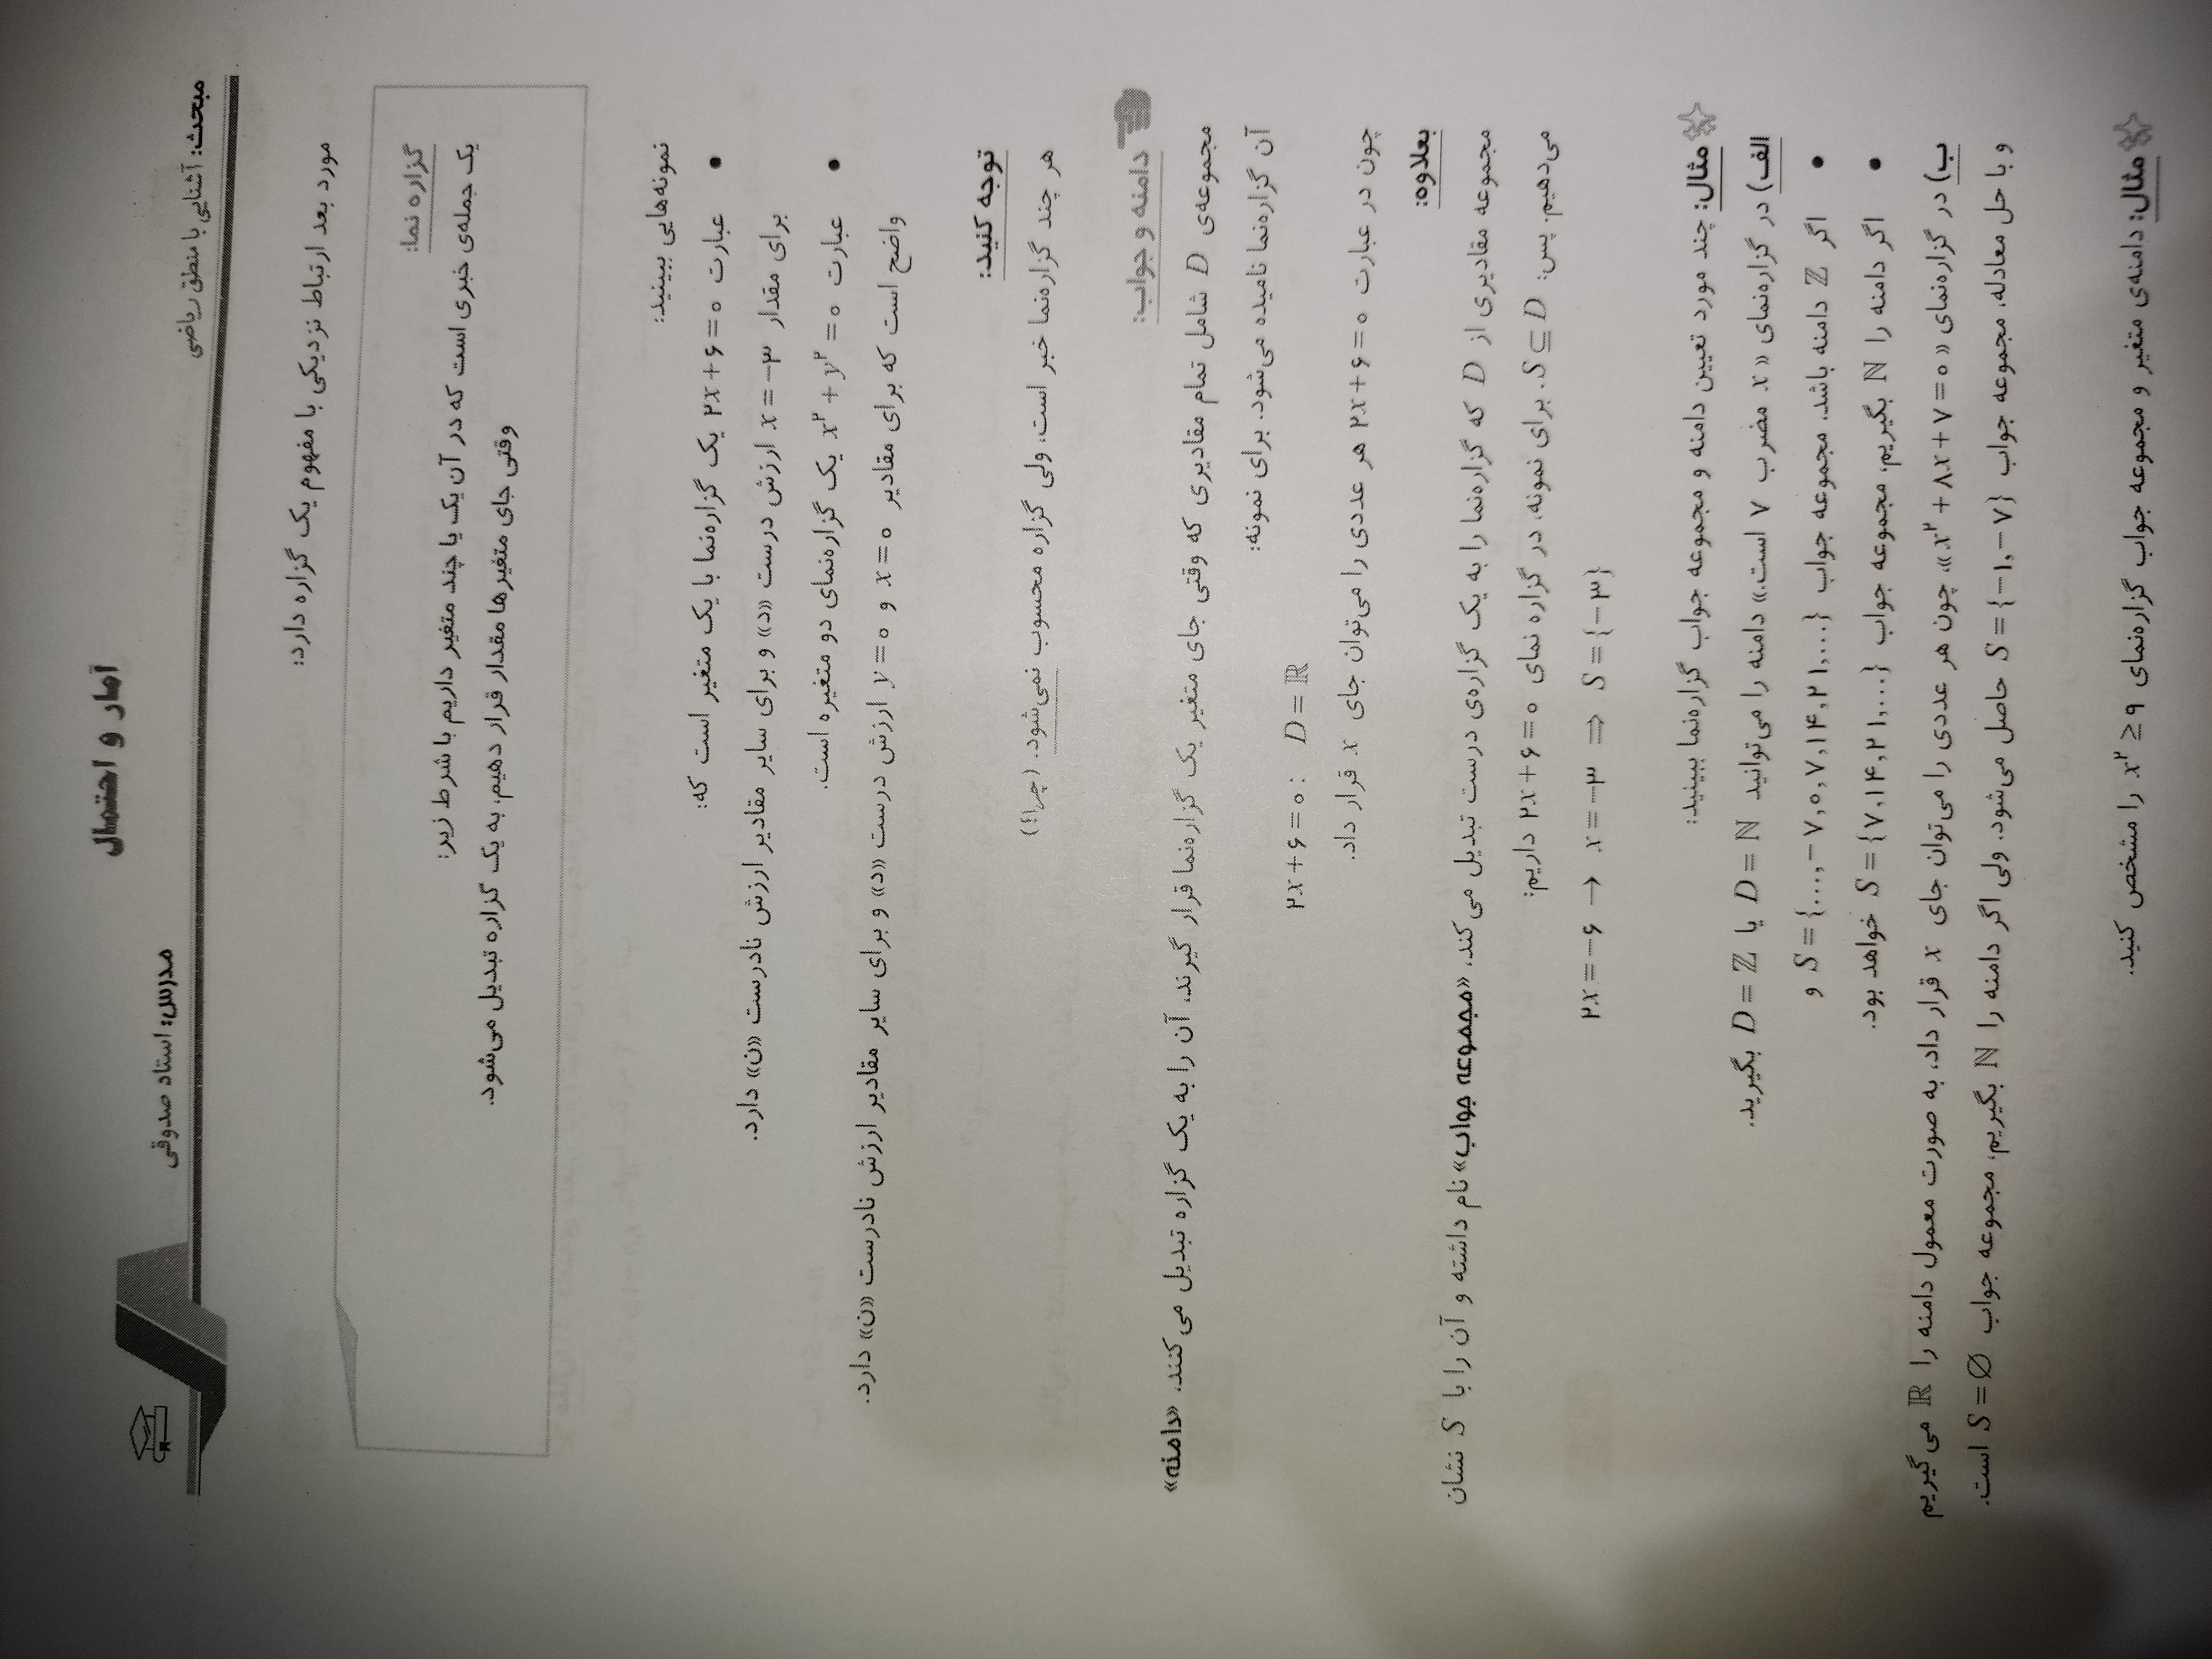 آمار و احتمال
مبحث: آشنایی با منطق ریاضی
مدرس: استاد صدوقی
مورد بعد ارتباط نزدیکی با مفهوم یک گزاره دارد:
گزاره نما:
یک جمله‌ی خبری است که در آن یک یا چند متغیر داریم با شرط زیر:
وقتی جای متغیرها مقدار قرار دهیم، به یک گزاره تبدیل می‌شود.
نمونه‌هایی ببینید:
• عبارت ۲x+۶=۰ یک گزاره‌نما با یک متغیر است که:
برای مقدار x=−۳ ارزش درست «د» و برای سایر مقادیر ارزش نادرست «ن» دارد.
• عبارت x²+y²=۰ یک گزاره‌نمای دو متغیره است.
واضح است که برای مقادیر x=۰ و y=۰ ارزش درست «د» و برای سایر مقادیر ارزش نادرست «ن» دارد.
توجه کنید:
هر چند گزاره‌نما خبر است، ولی گزاره محسوب نمی‌شود. (چرا؟)
دامنه و جواب:
مجموعه‌ی D شامل تمام مقادیری که وقتی جای متغیر یک گزاره‌نما قرار گیرند، آن را به یک گزاره تبدیل می‌کنند، «دامنه»
آن گزاره‌نما نامیده می‌شود. برای نمونه:
۲x+۶=۰ : D=ℝ
چون در عبارت ۲x+۶=۰ هر عددی را می‌توان جای x قرار داد.
بعلاوه:
مجموعه مقادیری از D که گزاره‌نما را به یک گزاره‌ی درست تبدیل می‌کند، «مجموعه جواب» نام داشته و آن را با S نشان
می‌دهیم. پس: S⊆D. برای نمونه، در گزاره نمای ۲x+۶=۰ داریم:
۲x=−۶ → x=−۳ ⇒ S={−۳}
مثال: چند مورد تعیین دامنه و مجموعه جواب گزاره‌نما ببینید:
الف) در گزاره‌نمای «x مضرب ۷ است.» دامنه را می‌توانید D=ℕ یا D=ℤ بگیرید.
• اگر ℤ دامنه باشد، مجموعه جواب S={...,−۷,۰,۷,۱۴,۲۱,...} و
• اگر دامنه را ℕ بگیریم، مجموعه جواب S={۷,۱۴,۲۱,...} خواهد بود.
ب) در گزاره‌نمای «x²+۸x+۷=۰»، چون هر عددی را می‌توان جای x قرار داد، به صورت معمول دامنه را ℝ می‌گیریم
و با حل معادله، مجموعه جواب S={−۱,−۷} حاصل می‌شود. ولی اگر دامنه را ℕ بگیریم، مجموعه جواب S=∅ است.
مثال: دامنه‌ی متغیر و مجموعه جواب گزاره‌نمای x²≥۹ را مشخص کنید.